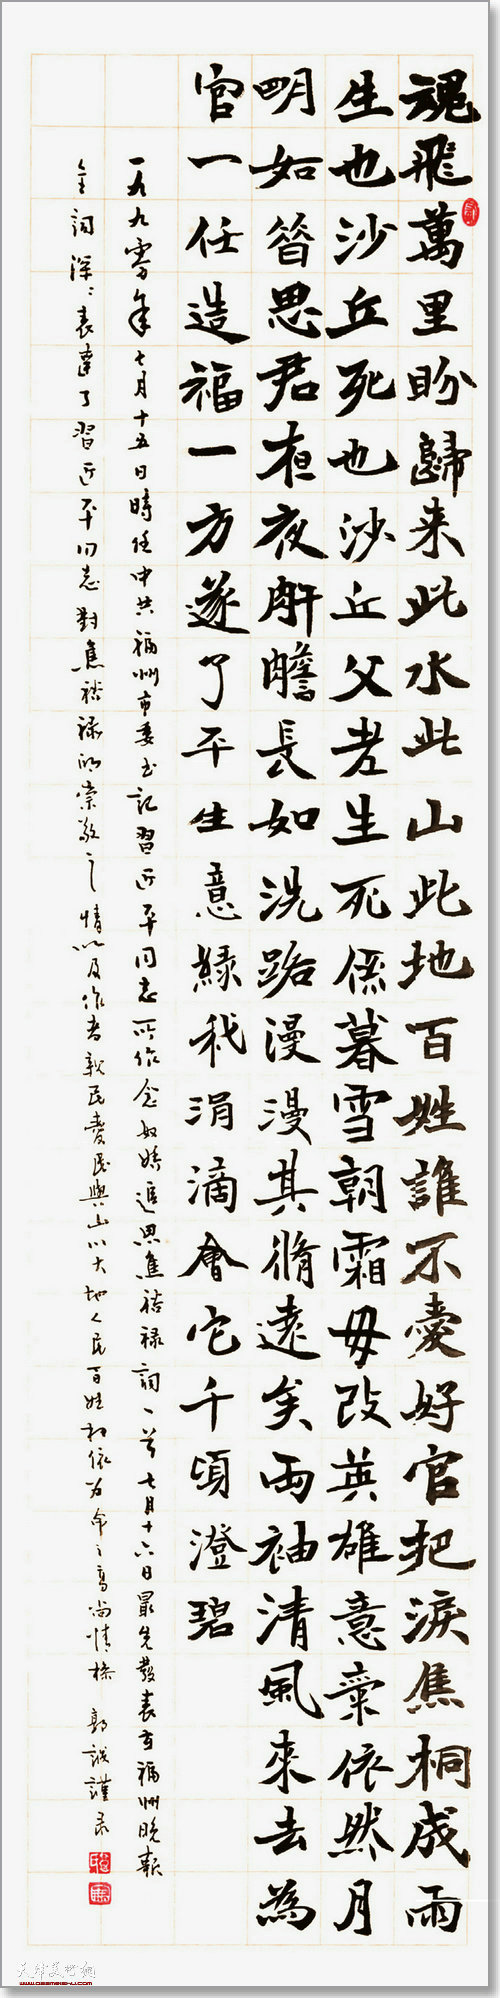 魂飛萬里盼歸来此水此山此地百姓誰不愛好官把淚焦桐成雨
生也沙丘死也沙丘父老生死係暮雪朝霜毋改英雄意氣依然月
明如昝思君夜夜肝膽長如洗路漫漫其脩遠矣兩袖清風來去為
官一任造福一方遂了平生意綠我涓滴會它千頃澄碧
一九九零年七月十五日時任中共福州市委书記習近平同志所作念奴嬌追思焦裕祿詞一首七月十六日最先發表在福州晚報
全詞深〻表達了習近平同志對焦裕祿的崇敬之情以及作者親民愛民與山川大地人民百姓相依为命之高尚情操 郭誠謹录
天津美术网